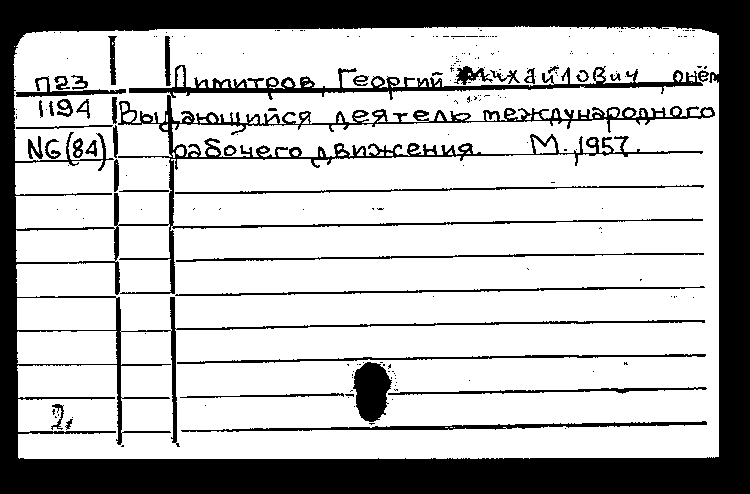 П23 Димитров, Георгий Михайлович, о нём
1194 Выдающийся деятель международного
NG(84) рабочего движения. М.,1957.
2.